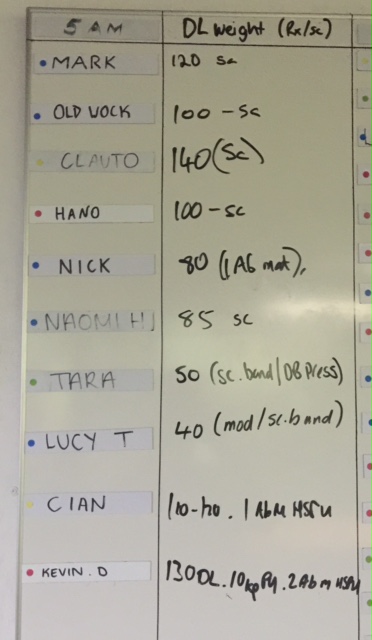 5 AM DL Weight (Rx/sc)
MARK 120 sc
OLD JOCK 100 - sc
CLAUTO 140 (Sc)
HANO 100 - sc
NICK 80 (1 Ab mat),
NAOMI H 85 sc
TARA 50 (sc.band/DB Press)
LUCY T 40 (mod/sc.band)
CIAN . 1 Abm HSPU
KEVIN.D 130 DL. 10kg . 2 Abm HSPU